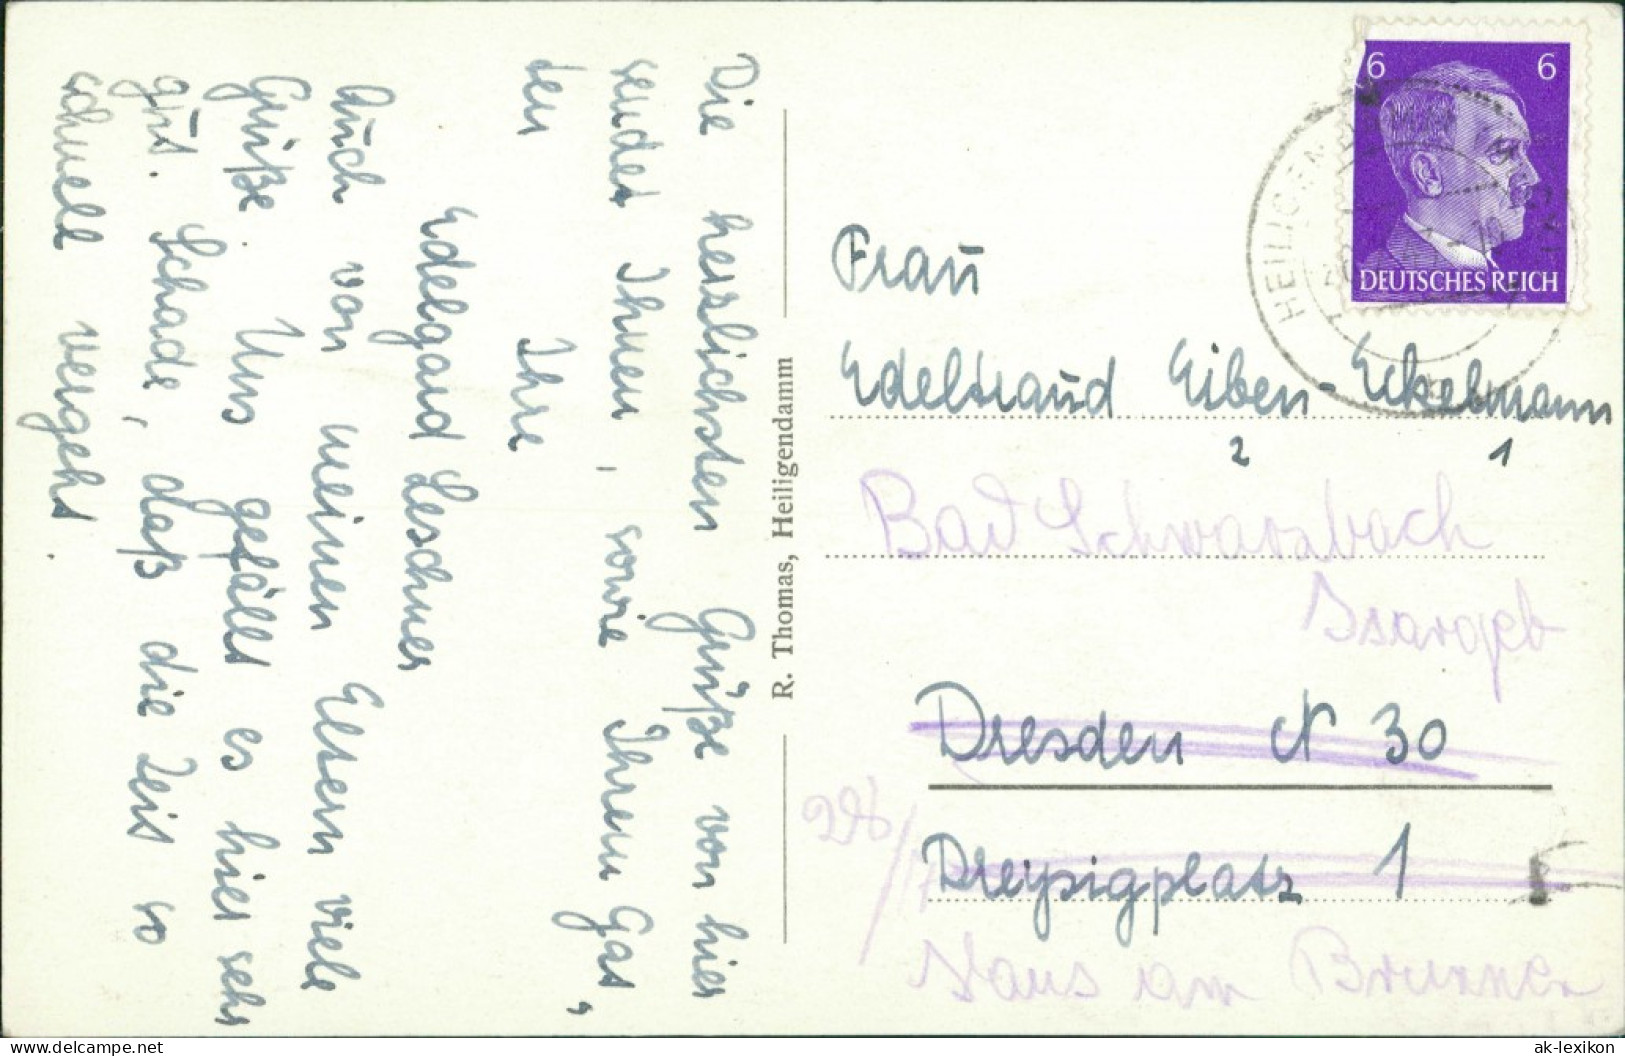 Die herzlichsten Grüße von hier
sendet Ihnen, sowie Ihrem Gat,
ten
Ihre
Edelgard Leschner
Auch von meinen Eltern viele
Grüße. Uns gefällt es hier sehr
gut. Schade, daß die Zeit so
schnell vergeht.
R. Thomas, Heiligendamm
6 6
DEUTSCHES REICH
HEILIGENDAMM
Frau
Edeltraud Eiben-Eckelmann
2 1
Bad Schwarzbach
Isargeb
Dresden N 30
Dreysigplatz 1
Haus am Brunnen
delcampe.net
ak-lexikon